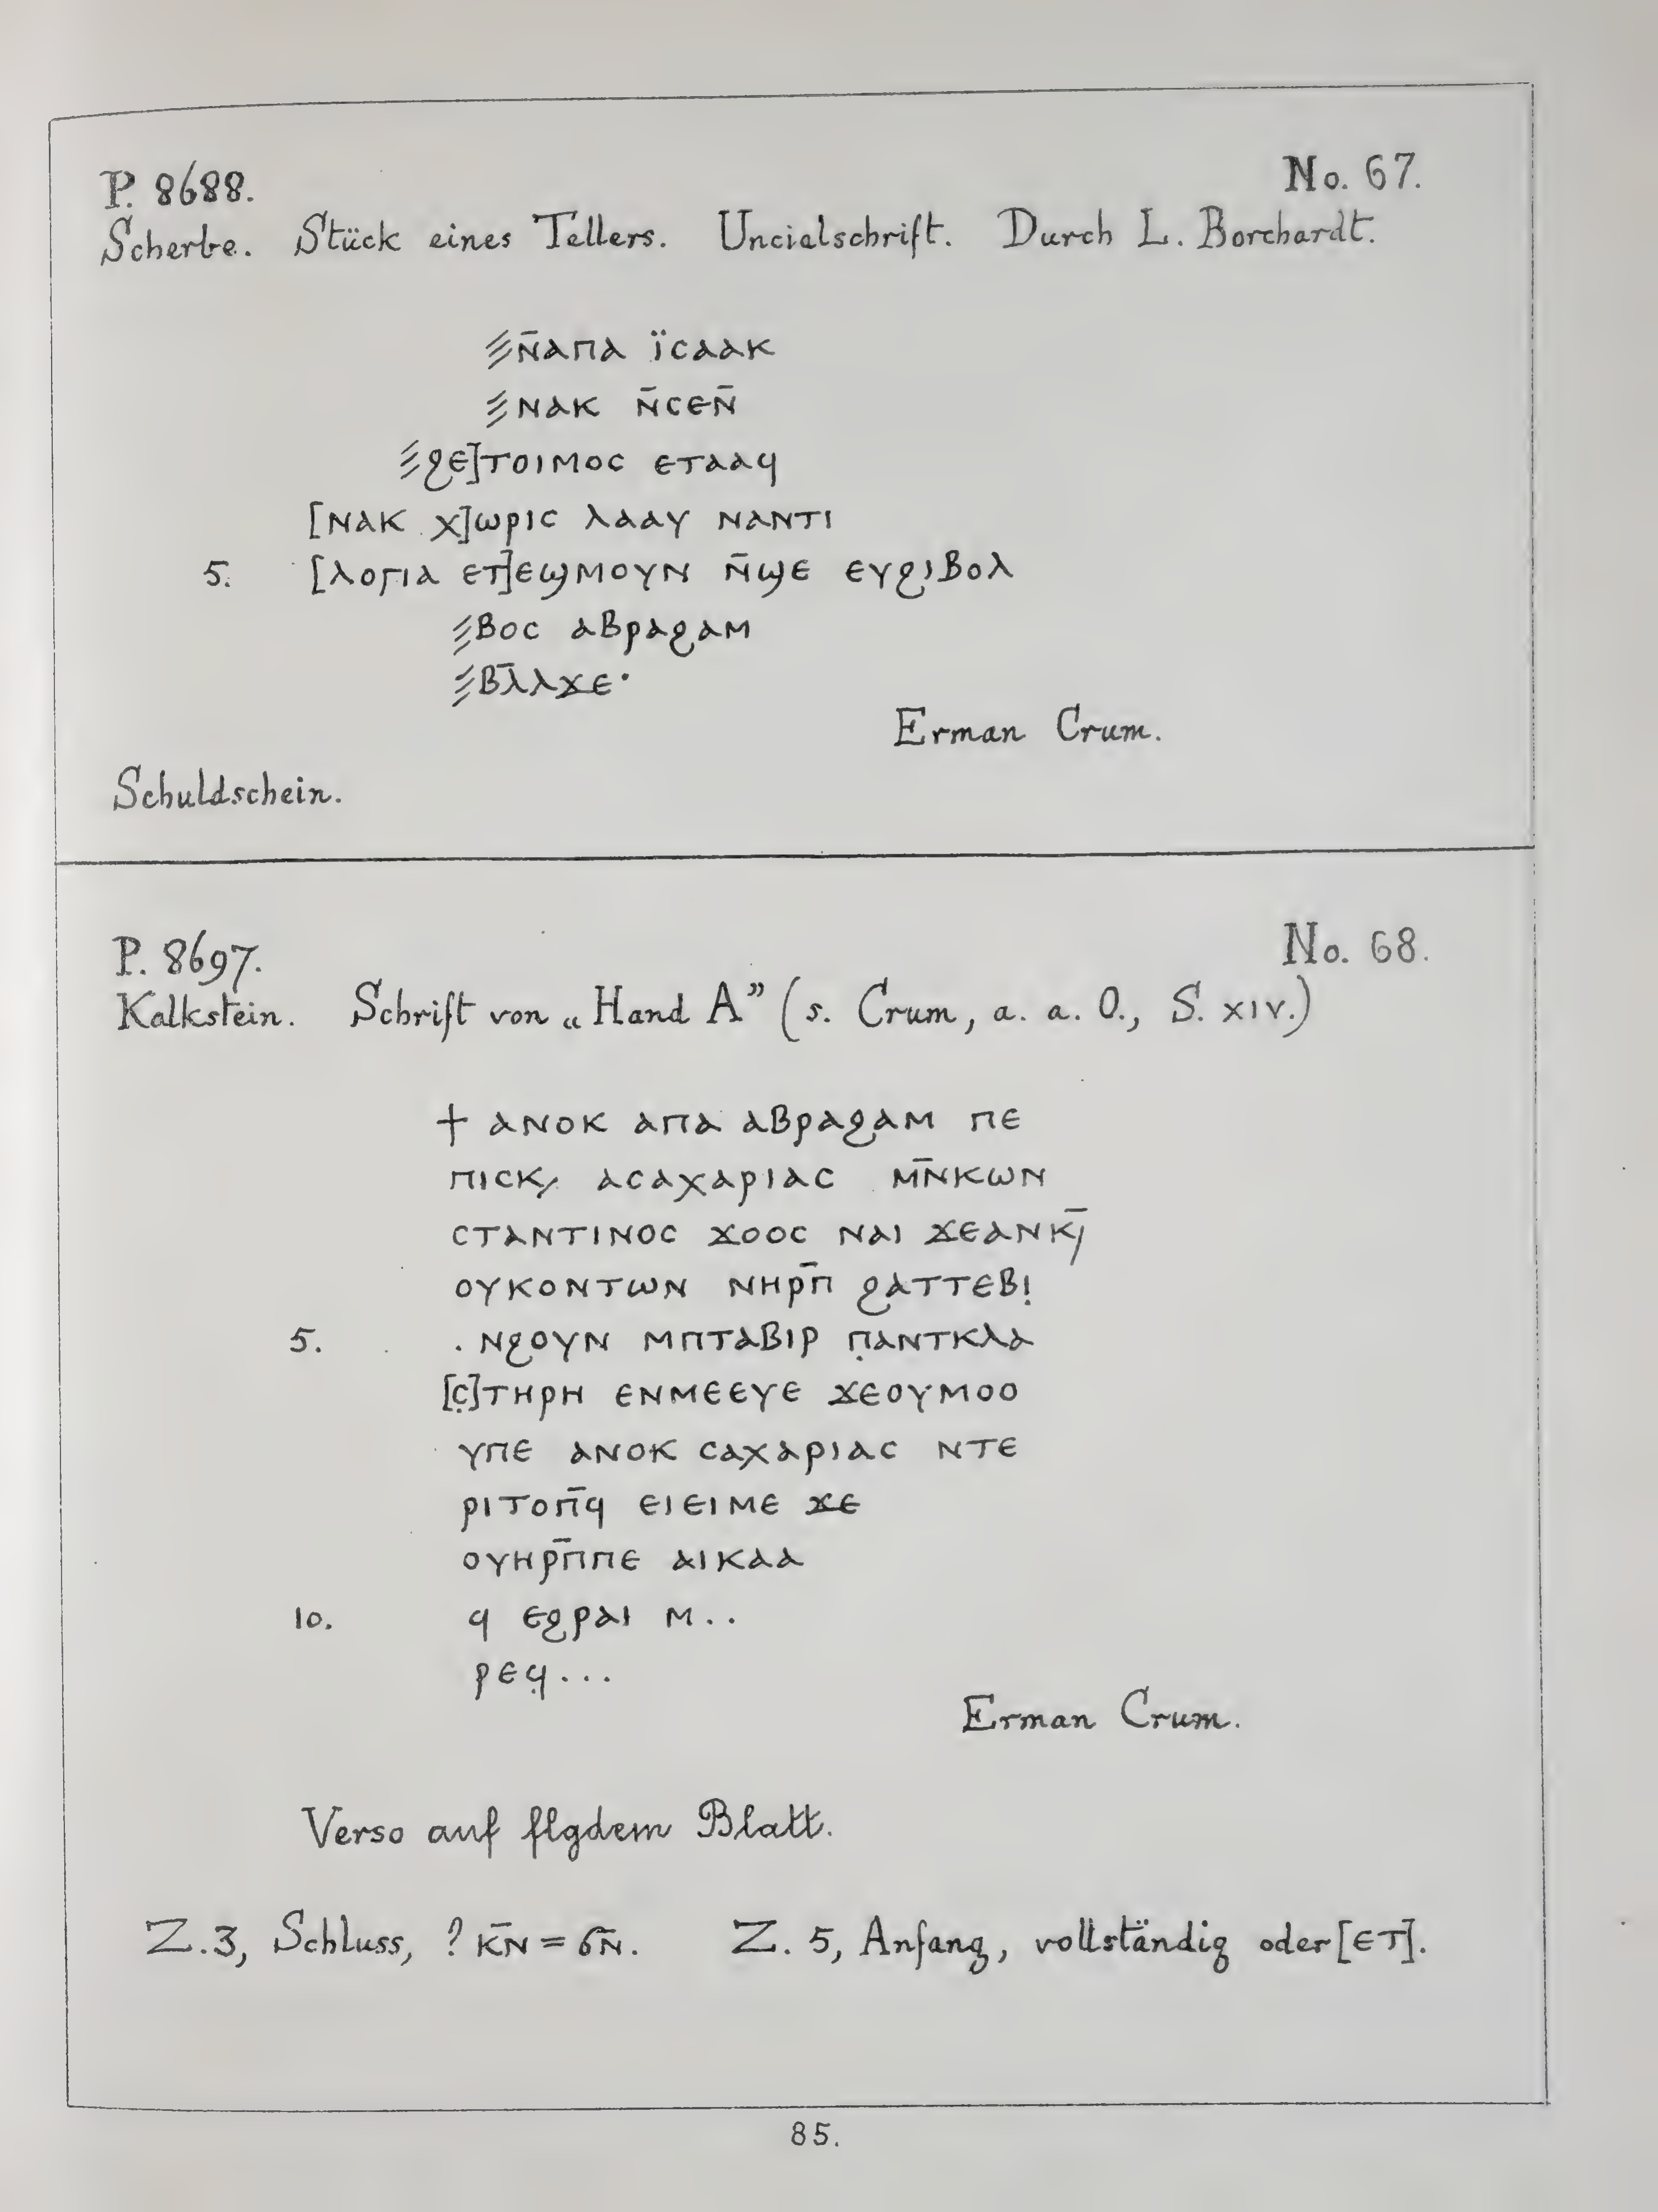 P. 8688. No. 67.
Scherbe. Stück eines Tellers. Uncialschrift. Durch L. Borchardt.
⳽ⲛ̄ⲁⲡⲁ ⲓ̈ⲥⲁⲁⲕ
⳽ⲛⲁⲕ ⲛ̄ⲥⲉⲛ̄
⳽ϩⲉ]ⲧⲟⲓⲙⲟⲥ ⲉⲧⲁⲁϥ
[ⲛⲁⲕ ⲭ]ⲱⲣⲓⲥ ⲗⲁⲁⲩ ⲛⲁⲛⲧⲓ
5. [ⲗⲟⲅⲓⲁ ⲉⲧ]ⲉϣⲙⲟⲩⲛ ⲛ̄ϣⲉ ⲉⲩϩⲓⲃⲟⲗ
⳽ⲃⲟⲥ ⲁⲃⲣⲁϩⲁⲙ
⳽ⲃⲗ̄ⲗϫⲉ·
Erman Crum.
Schuldschein.
P. 8697. No. 68.
Kalkstein. Schrift von „Hand A” (s. Crum, a. a. O., S. XIV.)
† ⲁⲛⲟⲕ ⲁⲡⲁ ⲁⲃⲣⲁϩⲁⲙ ⲡⲉ
ⲡⲓⲥⲕ/ ⲁⲥⲁⲭⲁⲣⲓⲁⲥ ⲙⲛ̄ⲕⲱⲛ
ⲥⲧⲁⲛⲧⲓⲛⲟⲥ ϫⲟⲟⲥ ⲛⲁⲓ ϫⲉⲁⲛⲕ̄/
ⲟⲩⲕⲟⲛⲧⲱⲛ ⲛⲏⲣⲡ̄ ϩⲁⲧⲧⲉⲃⲓ̣
5. . ⲛϩⲟⲩⲛ ⲙⲡⲧⲁⲃⲓⲣ ⲡ̣ⲁⲛⲧⲕⲗⲁ
[ⲥ̣]ⲧⲏⲣⲏ ⲉⲛⲙⲉⲉⲩⲉ ϫⲉⲟⲩⲙⲟⲟ
ⲩⲡⲉ ⲁⲛⲟⲕ ⲥⲁⲭⲁⲣⲓⲁⲥ ⲛⲧⲉ
ⲣⲓⲧⲟⲡ̄ϥ ⲉⲓⲉⲓⲙⲉ ϫⲉ
ⲟⲩⲏⲣⲡ̄ⲡⲉ ⲁⲓⲕⲁⲁ
10. ϥ ⲉϩⲣⲁⲓ ⲙ..
ⲣⲉϥ̣...
Erman Crum.
Verso auf flgdem Blatt.
Z.3, Schluss, ? ⲕ̄ⲛ = ϭⲛ̄. Z. 5, Anfang, vollständig oder [ⲉⲧ].
85.